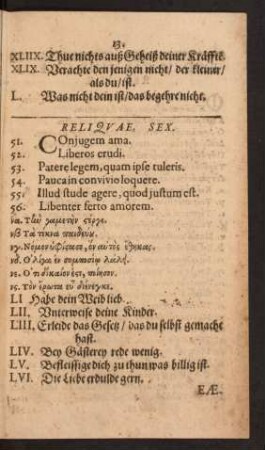 13.
XLIIX. Thue nichts auß Geheiß deiner Kräfftẽ.
XLIX. Verachte den jenigen nicht/ der kleiner/
als du/ist.
L. Was nicht dein ist/das begehre nicht.
RELIQVAE, SEX.
51. COnjugem ama.
52. Liberos erudi.
53. Patere legem, quam ipse tuleris.
54. Pauca in convivio loquere.
55. Illud stude agere, quod justum est.
56. Libenter ferto amorem.
να. Τὴν γαμετὴν στέργε.
νβ Τὰ τέκνα παίδευε.
νγ. Νόμον
νδ. Ὀλίγα ἐν συμποσίῳ λάλει.
νε. Ὅ τι δίκαιόν ἐστι, ποίησον.
νς. Τὸν ἔρωτα
LI Habe dein Weib lieb.
LII. Vnterweise deine Kinder.
LIII, Erleide das Gesetz / das du selbst gemacht
hast.
LIV. Bey Gästerey rede wenig.
LV. Befleissige dich zu thun was billig ist.
LVI. Die Liebe erdulde gern.
EÆ.